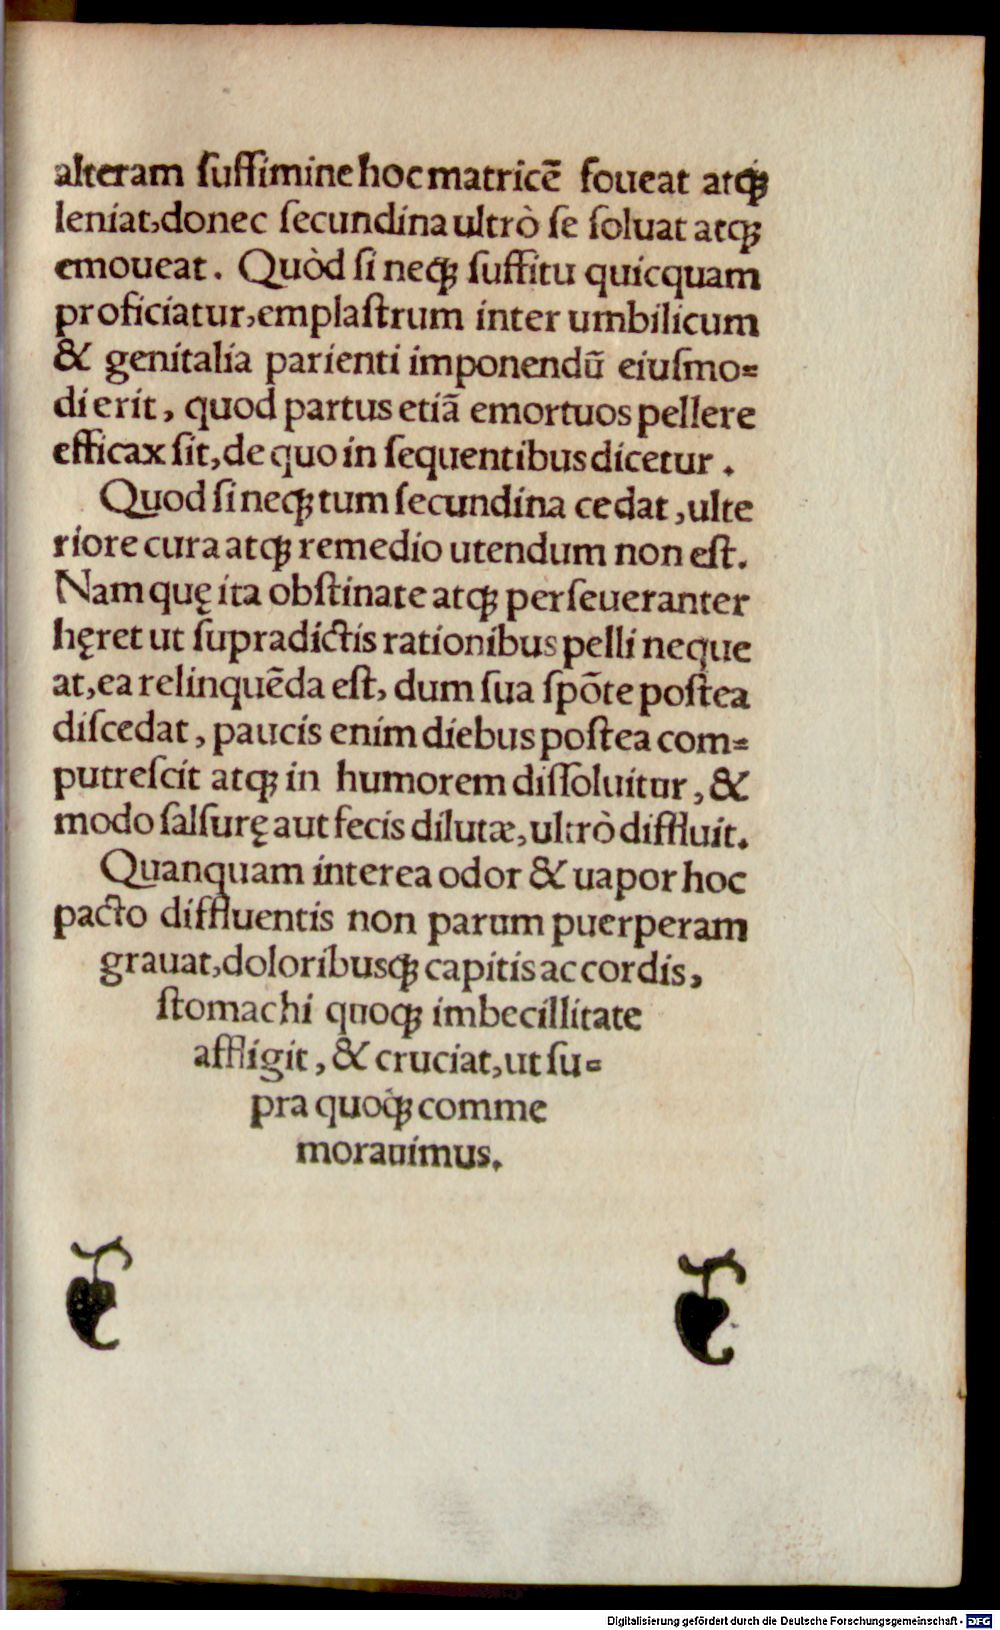 alteram ſuffimine hoc matricē foueat atq́ꝫ
leniat, donec ſecundina ultrò ſe ſoluat atqꝫ
emoueat. Quòd ſi neqꝫ ſuffitu quicquam
proficiatur, emplaſtrum inter umbilicum
& genitalia parienti imponendū eiuſmo=
di erit, quod partus etiā emortuos pellere
efficax ſit, de quo in ſequentibus dicetur.
Quod ſi neqꝫ tum ſecundina cedat, ulte
riore cura atqꝫ remedio utendum non eſt.
Nam quę ita obſtinate atqꝫ perſeueranter
hęret ut ſupradictis rationibus pelli neque
at, ea relinquēda eſt, dum ſua ſpōte poſtea
diſcedat, paucis enim diebus poſtea com=
putreſcit atqꝫ in humorem diſſoluitur, &
modo ſalſurę aut fecis dilutæ, ultrò diffluit.
Quanquam interea odor & uapor hoc
pacto diffluentis non parum puerperam
grauat, doloribusqꝫ capitis ac cordis,
ſtomachi quoqꝫ imbecillitate
affligit, & cruciat, ut ſu=
pra quoq́ꝫ comme
morauimus.
Digitalisierung gefördert durch die Deutsche Forschungsgemeinschaft - DFG